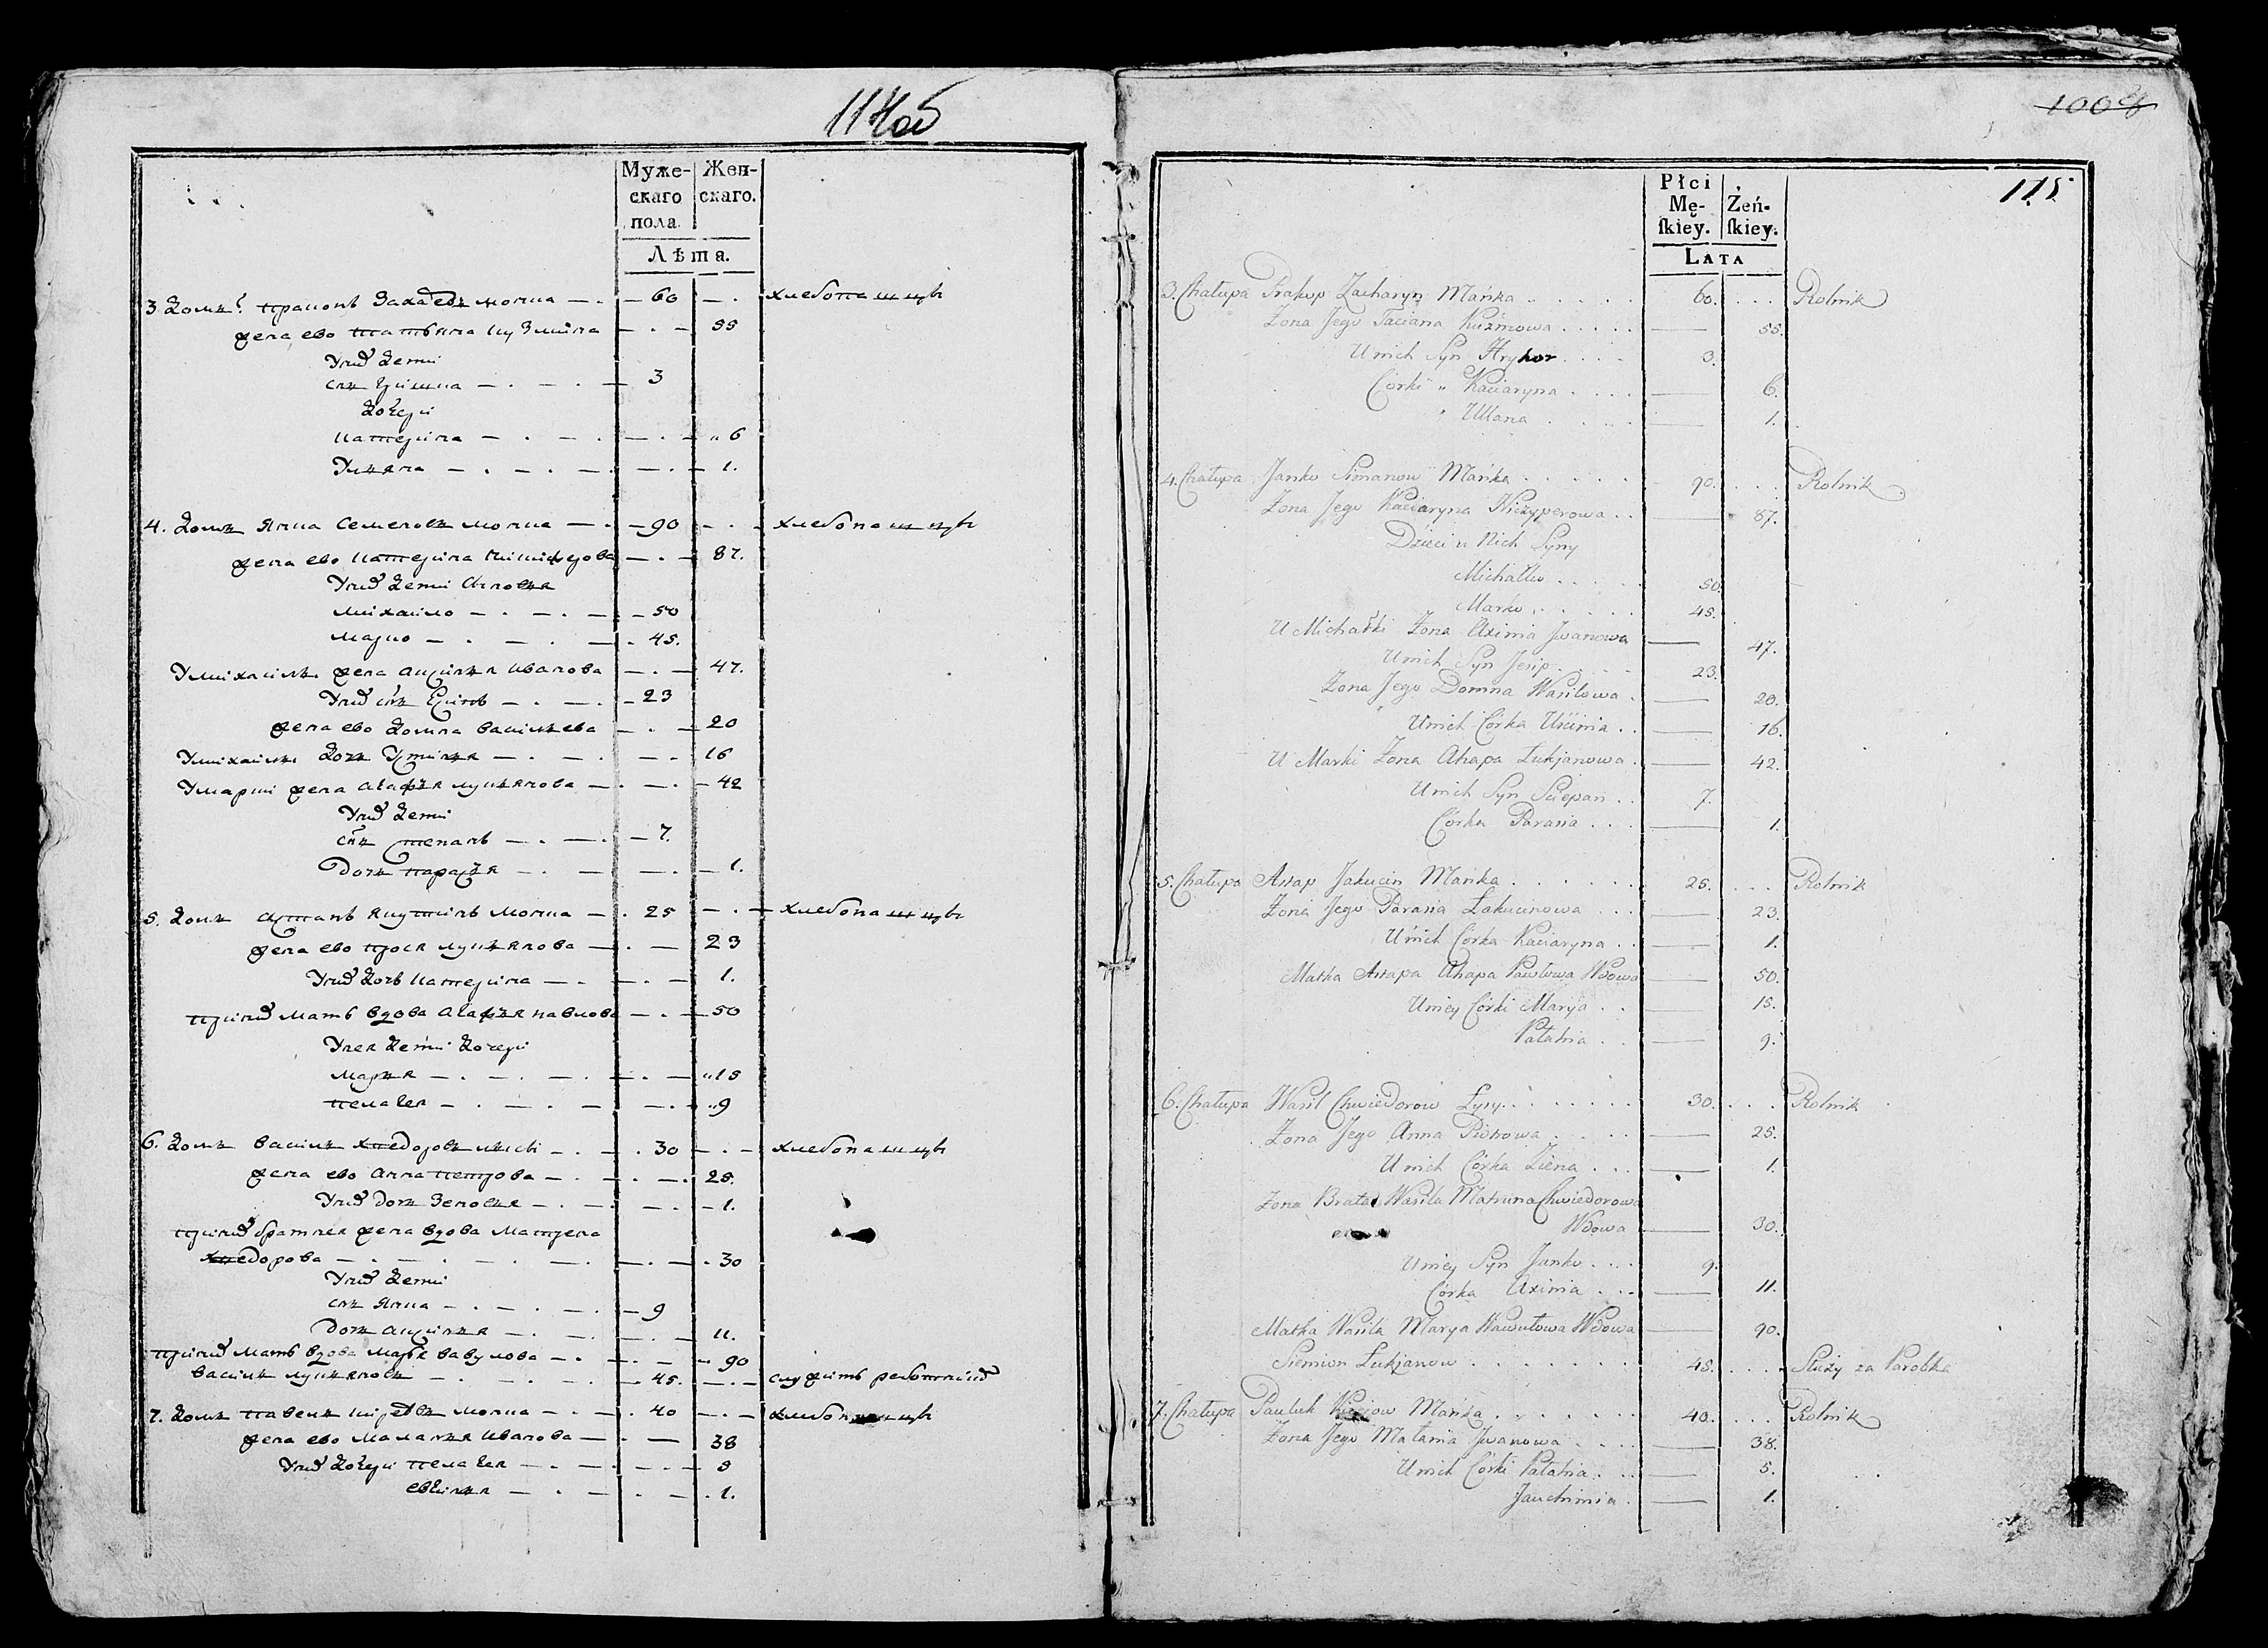 114об
Муже-
скаго
пола.
Жен-
скаго.
Лѣта.
3 Домъ прапопъ Захаревъ монка 60 хлебопашцы
жена ево татьяна кузмина 55
У них дети
снъ Гришка 3
дочери
катерина 6
Ульяна 1.
4. Домъ Янка Семеновъ монка 90 хлебопашцы
жена ево катерина 87.
У них дети сыновья
михайло 50
марко 45.
У михайлы жена аксинья иванова 47.
У них снъ Есипъ 23
жена ево домна васильева 20
У михайлы дочь Устинья 16
У марки жена агафья лукьянова 42
У них дети
снъ степанъ 7.
дочь парасья 1.
5. Домъ астапъ якутинъ монка 25 хлебопашцы
жена ево прося лукьянова 23
У них дочь катерина 1.
при них мать вдова агафья павлова 50
У нея дети дочери
марья 15
пелагея 9
6. Домъ василь хведоровъ лысы 30 хлебопашцы
жена ево анна петрова 25.
У них дочь Зеновья 1.
при них братнея жена вдова матрена
хведорова 30
У них дети
снъ янка 9
дочь аксинья 11.
при них мать вдова марья вавулова 90
василь лукьяновъ 45. служитъ
7. Домъ павелъ киревъ монка 40 хлебопашцы
жена ево маланья иванова 38
У них дочери пелагея 5
евгинья 1.
1008
115.
Płci
Mę-
ſkiey.
Żeń-
ſkiey.
LATA
3. Chałupa Prakop Zacharyn Mańka 60. Rolnik
Żona Jego Taciana Kuźmowa 55.
U nich Syn Hryhor 3.
Córki Kaciaryna 6.
Ullana 1.
4. Chałupa Janko Simanow Mańka 90. Rolnik
Żona Jego Kaciaryna Niczyperowa 87.
Dzieci u Nich Syny
Michałko 50.
Marko 45.
U Michałki Żona Axinia Jwanowa 47.
U nich Syn Jesip 23.
Żona Jego Domna Wasilowa 20.
U nich Córka Uścinia 16.
U Marki Żona Ahapa Łukjanowa 42.
U nich Syn Sciepan 7.
Córka Parasia 1.
5. Chałupa Astap Jakucin Mańka 25. Rolnik
Żona Jego Parasia Łakucinowa 23.
U nich Córka Kaciaryna 1.
Matka Astapa Ahapa Pawłowa Wdowa 50.
U niey Córki Marya 15.
Pałahia 9.
6. Chałupa Wasil Chwiedorow Łysy 30. Rolnik
Żona Jego Anna Piotrowa 25.
U nich Córka Ziena 1.
Żona Brata Wasila Matruna Chwiedorowa
Wdowa 30.
U niey Syn Janko 9.
Córka Axinia 11.
Matka Wasila Marya Wawułowa Wdowa 90.
Siemion Łukjanow 45. Służy za Parobka
7. Chałupa Pauluk Mańka 40. Rolnik
Żona Jego Małania Jwanowa 38.
U nich Córki Pałahia 5.
Jauchimia 1.